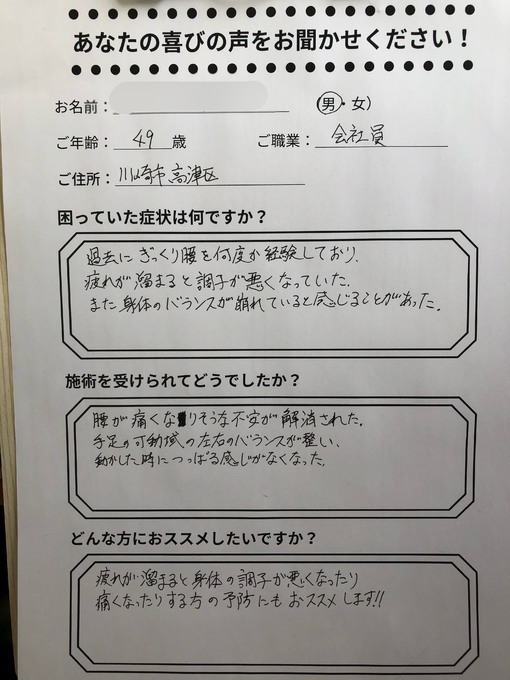 あなたの喜びの声をお聞かせください！
お名前： 男・女）
ご年齢： 49 歳 ご職業： 会社員
ご住所： 川崎市高津区
困っていた症状は何ですか？
過去にぎっくり腰を何度か経験しており、
疲れが溜まると調子が悪くなっていた。
また身体のバランスが崩れていると感じることがあった。
施術を受けられてどうでしたか？
腰が痛くなりそうな不安が解消された。
手足の可動域の左右のバランスが整い、
動かした時につっぱる感じがなくなった。
どんな方におススメしたいですか？
疲れが溜まると身体の調子が悪くなったり
痛くなったりする方の予防にもおススメします!!